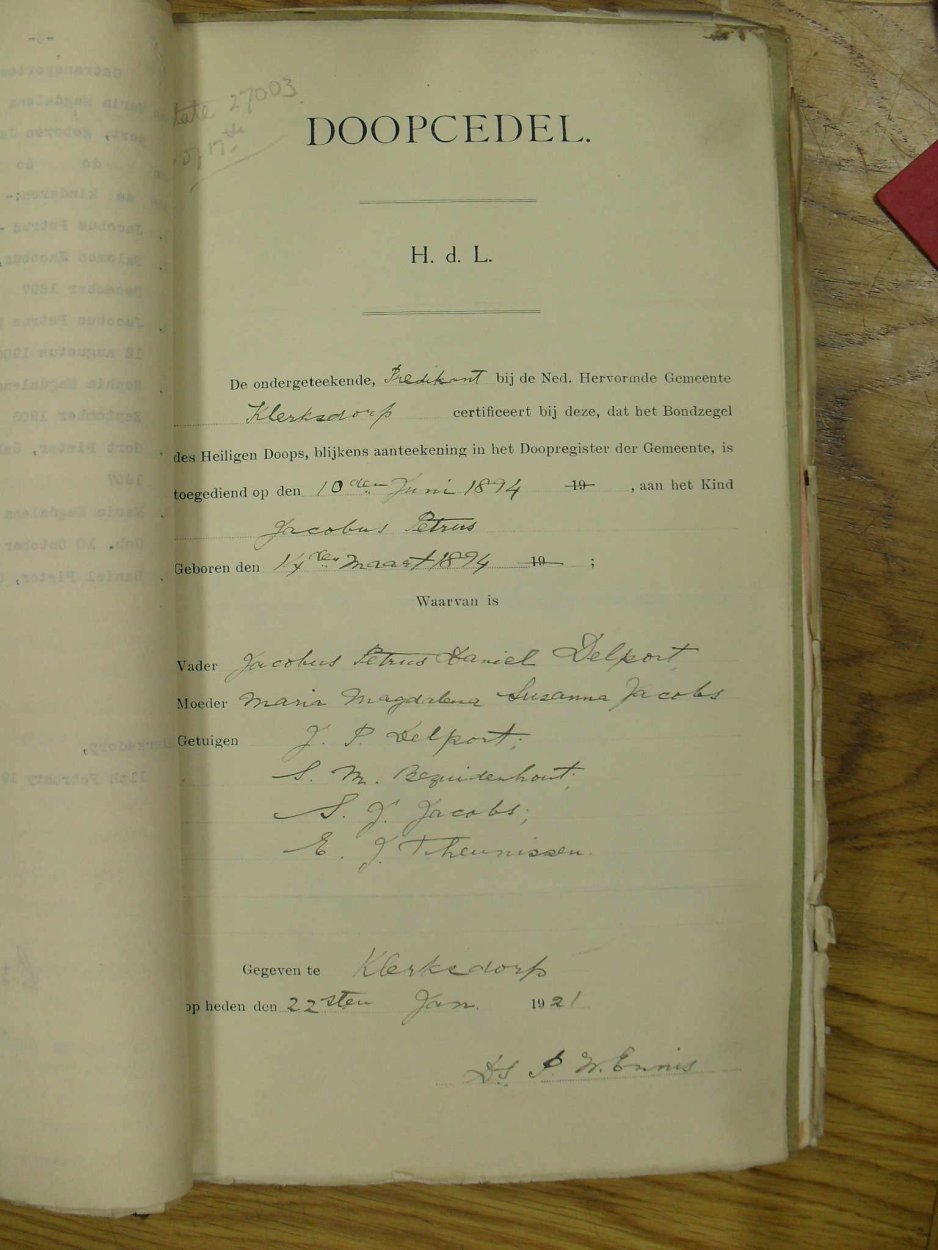 27003
DOOPCEDEL.
H. d. L.
De ondergeteekende, Predikant bij de Ned. Hervormde Gemeente
Klerksdorp certificeert bij deze, dat het Bondzegel
des Heiligen Doops, blijkens aanteekening in het Doopregister der Gemeente, is
toegediend op den 10den Juni 1894 19 , aan het Kind
Jacobus Petrus
Geboren den 14den Maart 1894 19 ;
Waarvan is
Vader Jacobus Petrus Daniel Delport
Moeder Maria Magdalena Susanna Jacobs
Getuigen J. P. Delport;
S. M. Bezuidenhout;
S. J. Jacobs;
E. J. Theunissen.
Gegeven te Klerksdorp
op heden den 22sten Jan. 1921
Ds. P. W. Ennis